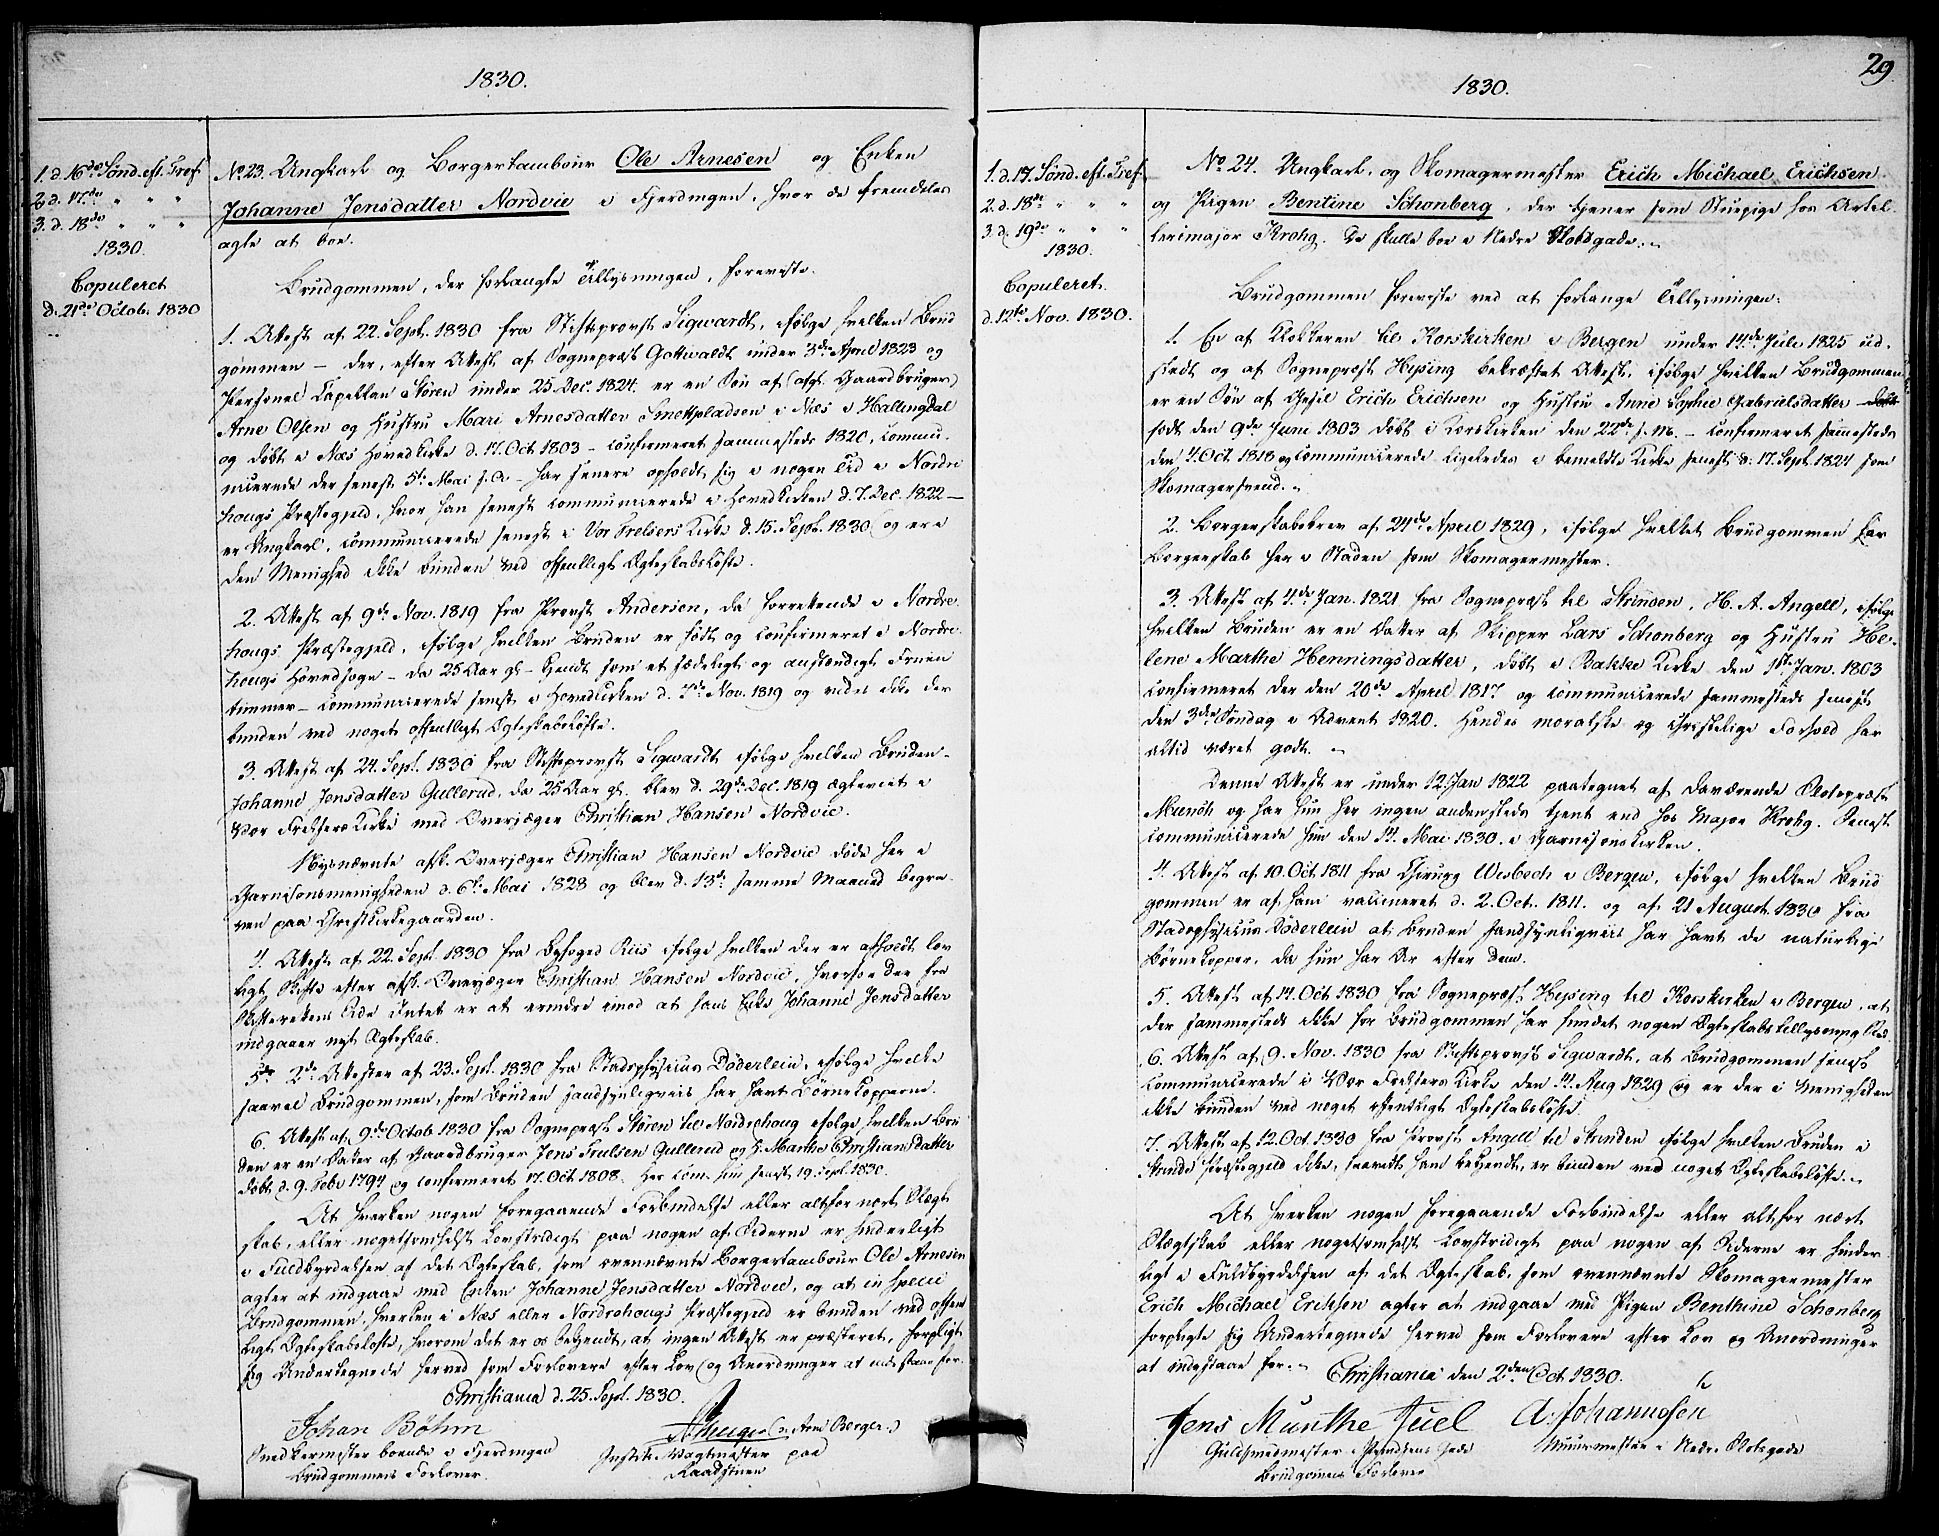 1830.
1. d. 16de Sønd. eft. Tref.
2. d. 17de " " "
3. d. 18de " " "
1830.
Copuleret
d. 21de Octob. 1830
No 23. Ungkarl og Borgertambour Ole Arnesen og Enken
Johanne Jensdatter Nordvie i Fjerdingen, hvor de fremdeles
agte at boe.
Brudgommen, der forlangte Tillysningen, foreviste.
1. Attest af 22. Sept. 1830 fra Stiftsprovst Sigwardt, ifølge hvilken Brud
gommen – der, efter Attest af Sognepræst Gottwaldt under 3die April 1823 og
Personel Capellan Støren under 25 Dec. 1824 er en Søn af (afg. Gaardbruger)
Arne Olsen og Hustru Mari Arnesdatter Smettpladsen i Næs i Hallingdal
og døbt i Næs Hovedkirke d. 17. Oct 1803 – confirmeret sammesteds 1820, commu-
nicerede der senest 5te Mai s. A. – har senere opholdt sig i nogen Tid i Nordre
hougs Præstegjeld, hvor han senest communicerede i Hovedkirken d. 7. Dec. 1822 –
er Ungkarl, communicerede senest i Vor Frelsers Kirke d. 15. Sept. 1830 og er i
den Menighed ikke bunden ved offentligt Ægteskabsløfte.
2. Attest af 9de Nov. 1819 fra Provst Andersen, da forrettende i Nordre-
hougs Præstegjeld, ifølge hvilken Bruden er født og confirmeret i Nordre-
hougs Hovedsogn – da 25 Aar gl. – kjendt som et sædeligt og anstændigt Fruen
timmer – communicerede senest i Hovedkirken d. 7de Nov. 1819 og vides ikke der
bunden ved noget offentligt Ægteskabsløfte.
3. Attest af 24. Sept. 1830 fra Stiftsprovst Sigwardt ifølge hvilken Bruden
Johanne Jensdatter Gullerud, da 25 Aar gl. blev d. 29de Dec. 1819 ægteviet i
Vor Frelsers Kirke med Overjæger Christian Hansen Nordvie.
Nysnævnte afsk. Overjæger Christian Hansen Nordvie døde her i
Garnisonsmenigheden d. 6te Mai 1828 og blev d. 13de samme Maaned begra-
ven paa Christkirkegaarden.
4. Attest af 22. Sept. 1830 fra Byfoged Riis ifølge hvilken der er afholdt lov
ligt Skifte efter afsk. Overjæger Christian Hansen Nordvie, hvorfor der fra
Skifterettens Side Intet er at erindre imod at hans Enke Johanne Jensdatter
indgaaer nyt Ægteskab.
5te 2de Attester af 23. Sept. 1830 fra Stadsphysicus Døderlein, ifølge hvilke
saavel Brudgommen, som Bruden sandsynligviis har havt Børnekopperne.
6. Attest af 9de Octob. 1830 fra Sognepræst Støren til Nordrehoug ifølge hvilken Bru
den er en Datter af Gaardbruger Jens Gullerud og H. Marthe Christiansdatter
døbt d. 9. Febr 1794 og confirmeret 17. Oct 1808. Her com. hun senest 19. Sept. 1830.
At hverken nogen foregaaende Forbindelse eller altfor nært Slægt
skab, eller nogetsomhelst Lovstridigt paa nogen af Siderne er hinderligt
i Fuldbyrdelsen af det Ægteskab, som ovennævnte Borgertambour Ole Arnesen
agter at indgaae med Enken Johanne Jensdatter Nordvie, og at in specie
Brudgommen, hverken i Næs eller Nordrehougs Præstegjeld er bunden ved offent
ligt Ægteskabsløfte, hvorom det er os bekjendt, at ingen Attest er præsteret, forpligte
sig Undertegnede herved som Forlovere efter Lov og Anordninger at indestaae for.
Christiania d. 25. Sept. 1830.
Johan Bøhm
Snedkermester boende i Fjerdingen
Brudgommens Forlover.
(Arne Berger.)
Vagtmester paa
Raadstuen
29
1830.
1. d. 17. Sønd. eft. Tref.
2. d. 18de " " "
3. d. 19de " " "
1830.
Copuleret.
d. 12te Nov. 1830.
No 24. Ungkarl, og Skomagermester Erich Michael Erichsen
og Pigen Bentine Schonberg, der tjener som Stuepige hos Artil-
lerimajor Krohg. De skulle boe i Nedre Slotsgade.
Brudgommen foreviste ved at forlange Tillysningen:
1. En af Klokkeren til Korskirken i Bergen under 14de Juli 1825 ud-
stedt og af Sognepræst Heysing bekræftet Attest, ifølge hvilken Brudgommen
er en Søn af Erich Erichsen og Hustru Anne Sophie Gabrielsdatter
født den 9de Juni 1803 døbt i Korskirken den 22de s. M. – confirmeret sammesteds
den 4. Oct. 1818 og communicerede ligeledes i bemeldte Kirke senest d. 17. Sept. 1824 som
Skomagersvend.
2. Borgerskabsbrev af 24de April 1829, ifølge hvilket Brudgommen har
Borgerskab her i Staden som Skomagermester.
3. Attest af 4de Jan. 1821 fra Sognepræst til Strinden, H. A. Angell, ifølge
hvilken Bruden er en Datter af Skipper Lars Schonberg og Hustru He-
lene Marthe Henningsdatter, døbt i Bakke Kirke den 1ste Jan. 1803
confirmeret der den 20de April 1817 og communicerede sammesteds senest
den 3die Søndag i Advent 1820. Hendes moralske og christelige Forhold har
altid været godt.
Denne Attest er under 12. Jan 1822 paategnet af daværende Slotspræst
Munch og har hun her ingen andensteds tjent end hos Major Krohg. Senest
communicerede hun den 14. Mai 1830 i Garnisonskirken.
4. Attest af 10. Oct. 1811 fra Chirurg Wesboch i Bergen, ifølge hvilken Brud
gommen er af ham vaccineret d. 2. Oct. 1811. og af 21 August 1830 fra
Stadsphysicus Døderlein at Bruden sandsynligviis har havt de naturlige
Børnekopper, da hun har Ar efter dem.
5. Attest af 14. Oct 1830 fra Sognepræst Heysing til Korskirken i Bergen, at
der sammesteds ikke for Brudgommen har fundet nogen Ægteskabstillysning Sted.
6. Attest af 9. Nov. 1830 fra Stiftsprovst Sigwardt, at Brudgommen senest
communicerede i Vor Frelsers Kirke den 14. Aug 1829 og er der i Menigheden
ikke bunden ved noget offentligt Ægteskabsløfte.
7. Attest af 12. Oct. 1830 fra Provst Angell til Strinden ifølge hvilken Bruden i
Strinde Præstegjeld ikke, saavidt ham bekjendt, er bunden ved noget Ægteskabsløfte.
At hverken nogen foregaaende Forbindelse eller altfor nært
Slægtskab eller nogetsomhelst Lovstridigt paa nogen af Siderne er hinder
ligt i Fuldbyrdelsen af det Ægteskab, som ovennævnte Skomagermester
Erich Michael Eriksen agter at indgaae med Pigen Benthine Schonberg
forpligte sig Undertegnede herved som Forlovere efter Lov og Anordninger
at indestaae for.
Christiania den 2den Oct 1830.
Jens Munthe Juel
Guldsmedmester i Prindsens Gade
Brudgommens Forlover
A. Johannesen
Muurmester i Nedre Slotsgade